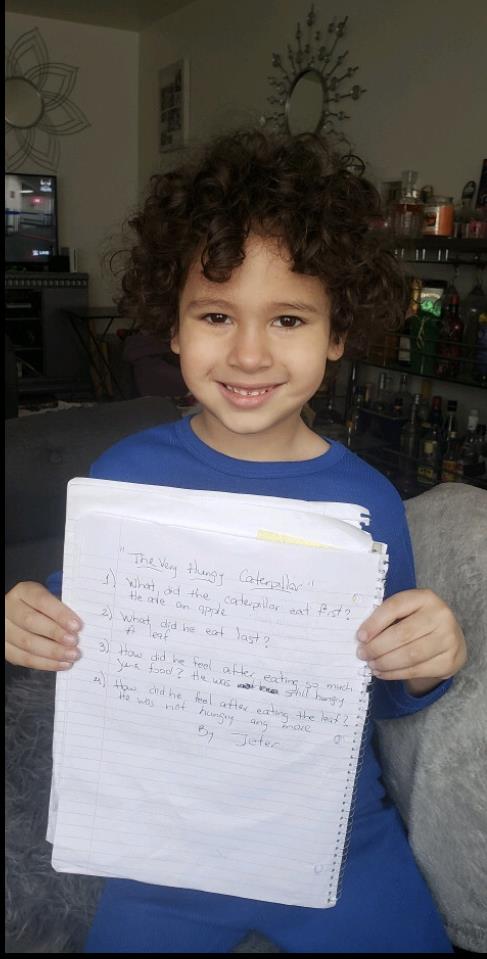 "The Very Hungy Caterpillar"
1) What did the caterpillar eat first?
He ate an apple
2) What did he eat last?
A leaf
3) How did he feel after eating so much
junk food? He was still hungry
4) How did he feel after eating the leaf?
He was not hungry any more
By Jeter